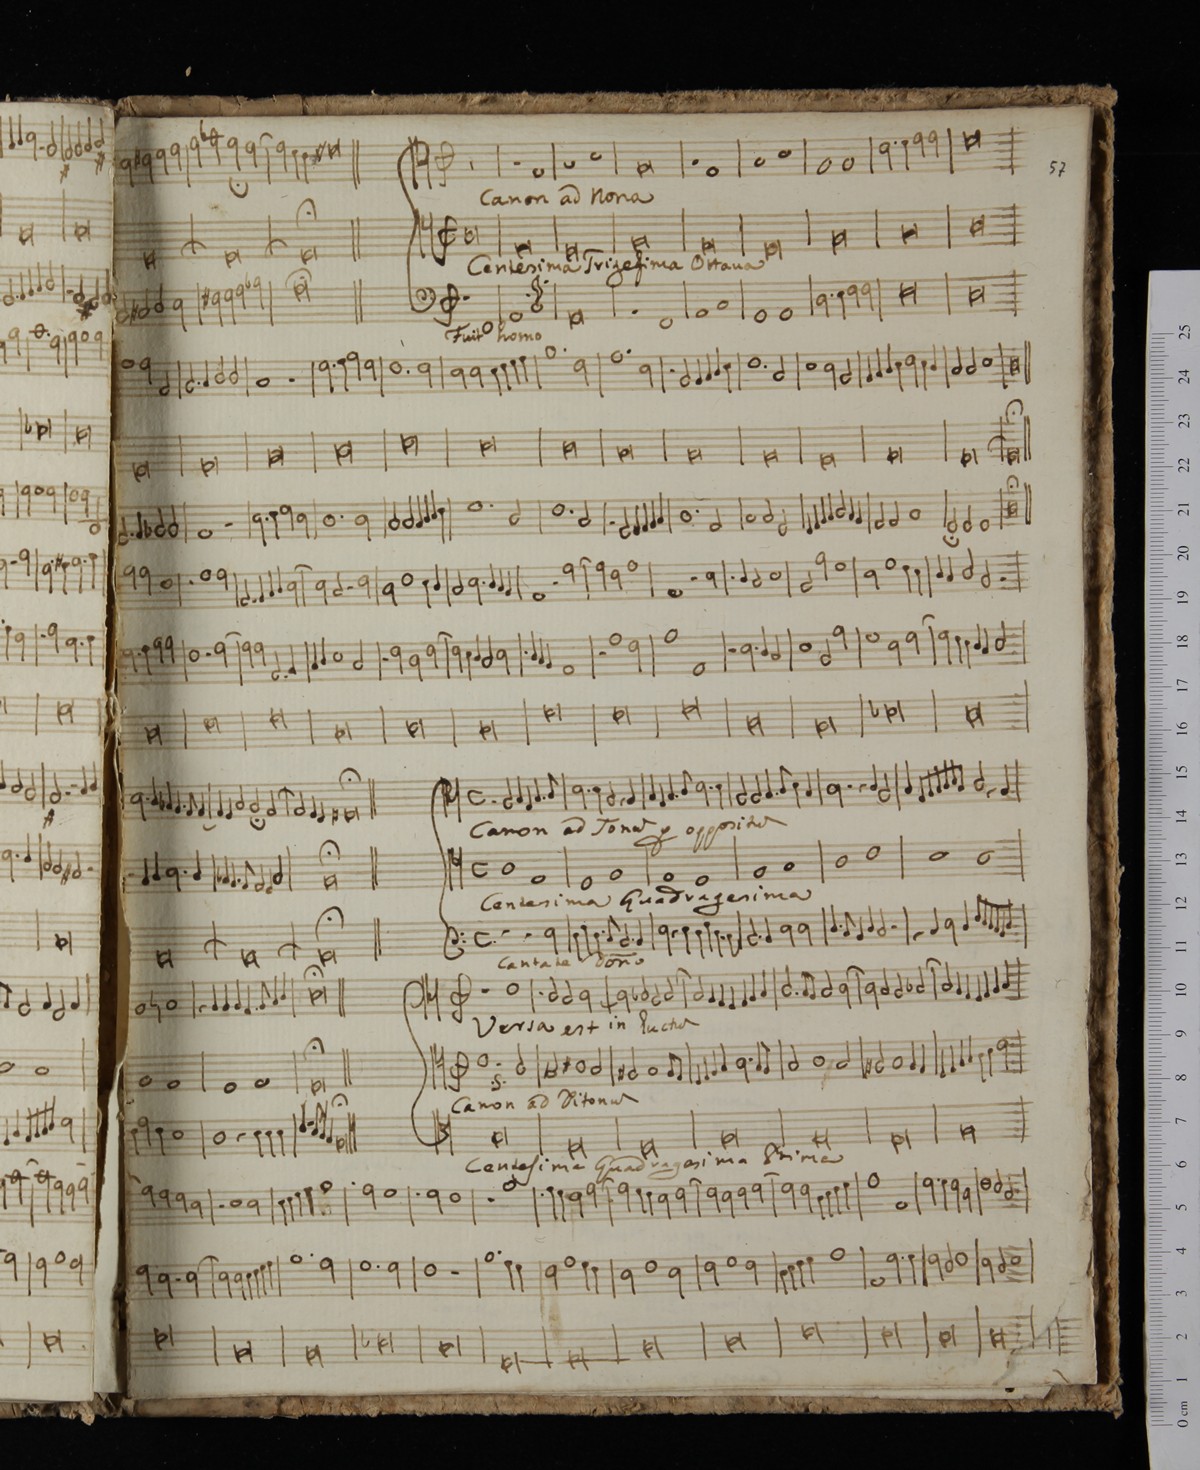 57
Canon ad Nona
Centesima Trigesima Ottaua
Fuit homo
Canon ad Tona
Centesima Quadragesima
Cantate Dono
Versa est in luctu
Canon ad Ditonu
Centesima Quadragesima Prima
25
24
23
22
21
20
19
18
17
16
15
14
13
12
11
10
9
8
7
6
5
4
3
2
1
0 cm